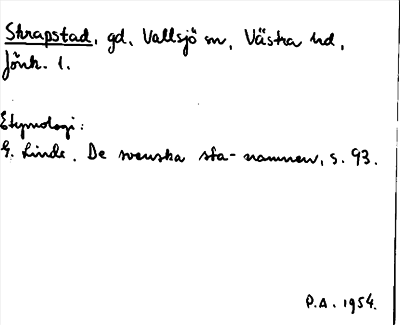 Skrapstad, gd, Vallsjö sn, Västra hd,
Jönk. l.
Etymologi:
G. Linde. De svenska sta-namnen, s. 93.
P.A. 1954.